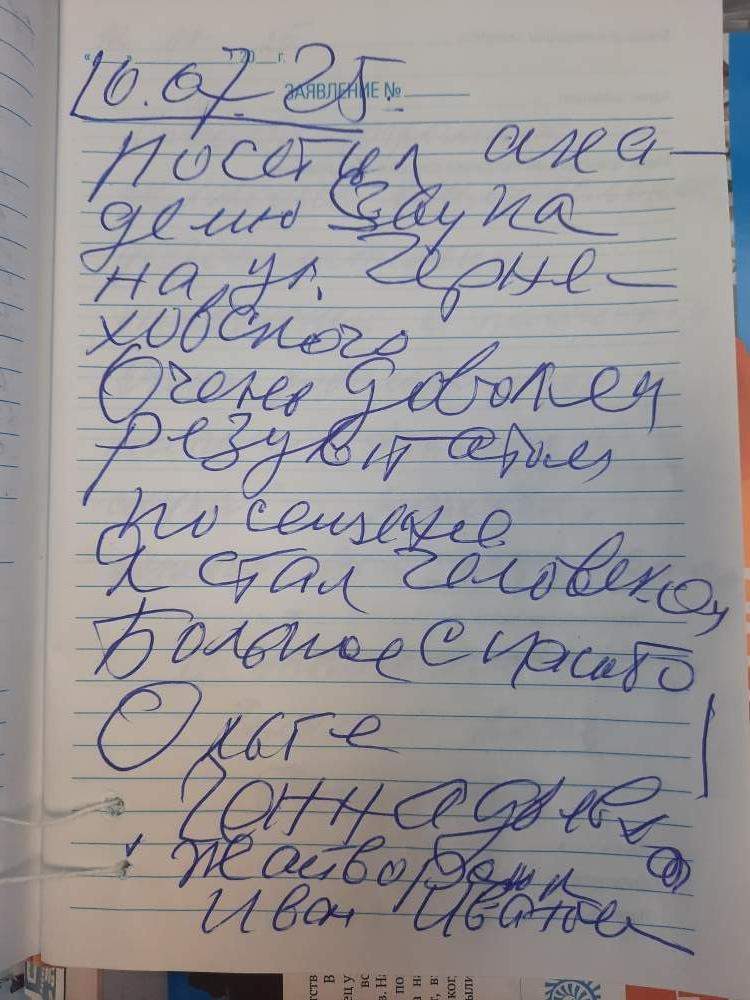 "  "  20  г.
10.07.25.
ЗАЯВЛЕНИЕ №
посетил ака-
демию Звука
на ул. Черне-
ховского
Очень доволен
результатом
посещение
Я стал человеком
Большое спасибо
Ольге
Геннадьевне
Иван Иванов